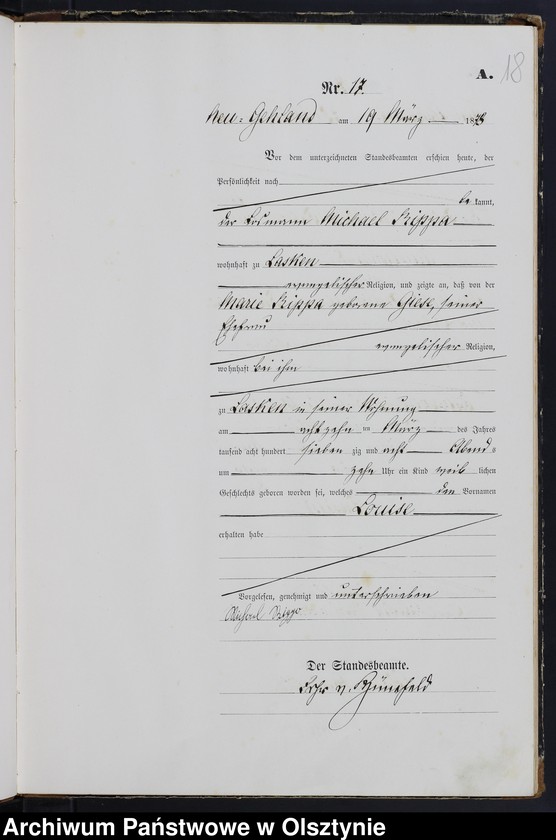 18
A.
Nr. 17.
Neu-Gehland am 19 März 1878
Vor dem unterzeichneten Standesbeamten erschien heute, der
Persönlichkeit nach
be kannt,
der Losmann Michael
wohnhaft zu Lasken
evangelischer Religion, und zeigte an, daß von der
Marie geborene seiner
Ehefrau
evangelischer Religion,
wohnhaft bei ihm
zu Lasken in seiner Wohnung
am achtzehn ten März des Jahres
tausend acht hundert sieben zig und acht Abend=
um zehn Uhr ein Kind weib lichen
Geschlechts geboren worden sei, welches den Vornamen
Louise
erhalten habe
Vorgelesen, genehmigt und unterschrieben
Michael
Der Standesbeamte.
v.
Archiwum Państwowe w Olsztynie